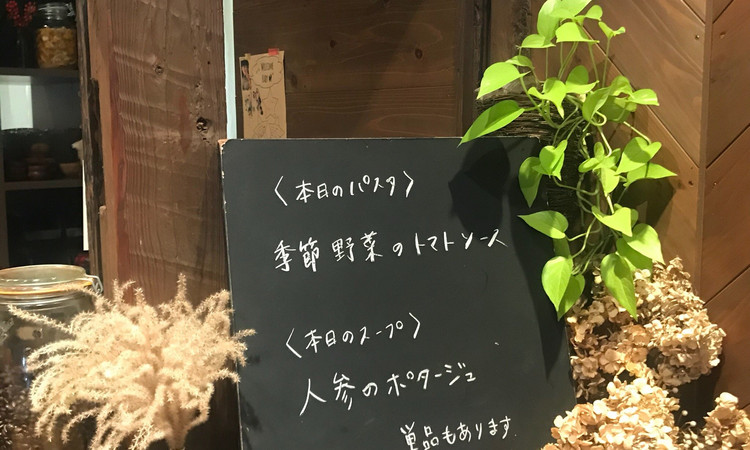 〈本日のパスタ〉
季節野菜のトマトソース
〈本日のスープ〉
人参のポタージュ
単品もあります